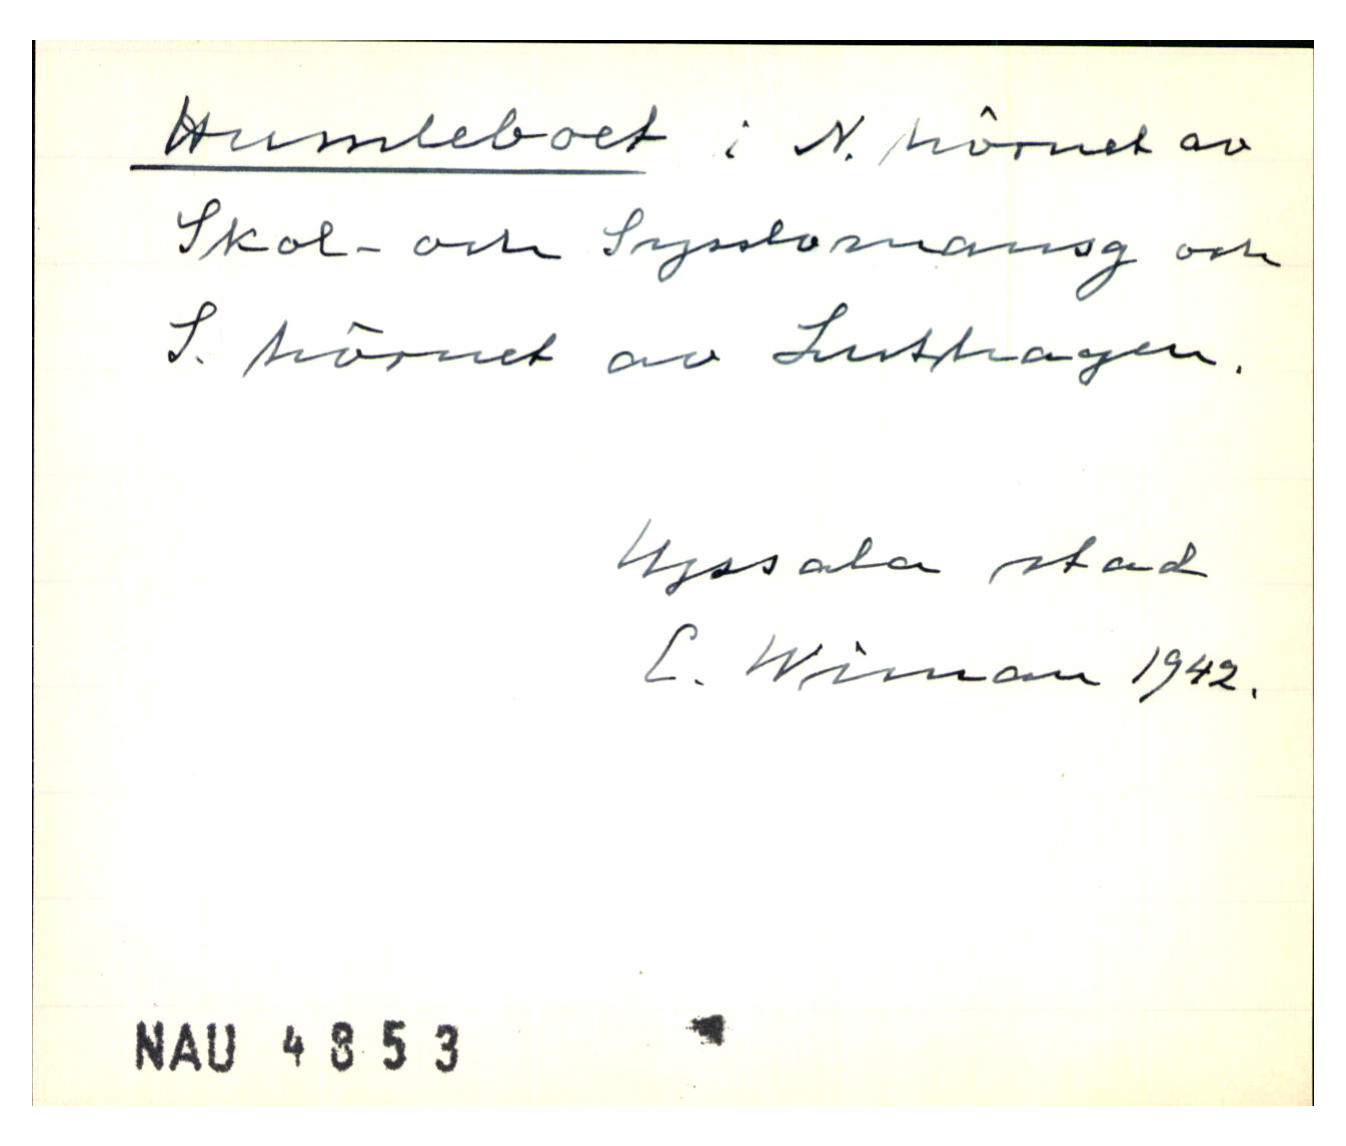 Humleboet i N. hörnet av
Skol- och Sysslomansg och
S. hörnet av Luthagen.
Uppsala stad
L. Wiman 1942.
NAU 4853